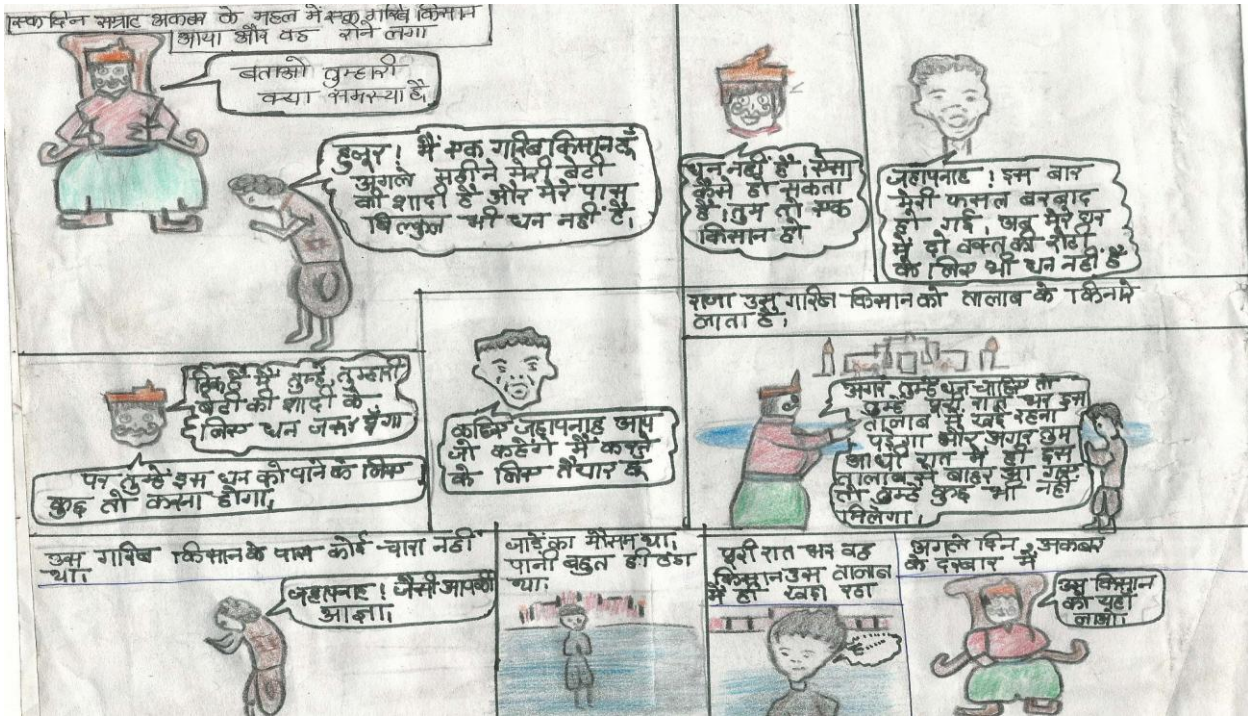 एक दिन सम्राट अकबर के महल में एक गरिब किसान
आया और वह रोने लगा
बताओ तुम्हारी
क्या समस्या है
हुजूर! मैं एक गरिब किसान हूँ
अगले महीने मेरी बेटी
की शादी है और मेरे पास
बिल्कुल भी धन नहीं है।
धन नहीं है। ऐसा
कैसे हो सकता
है। तुम तो एक
किसान हो
जहापनाह! इस बार
मेरी फसल बरबाद
हो गई, अब मेरे घर
में दो वक्त की रोटी
के लिए भी धन नहीं है
ठिक है मैं तुम्हें तुम्हारी
बेटी की शादी के
लिए धन जरूर दूँगा
पर तुम्हें इस धन को पाने के लिए
कुछ तो करना होगा।
कहिए जहापनाह आप
जो कहेंगे मैं करने
के लिए तैयार हूँ
राजा उस गरिब किसान को तालाब के किनारे
लाता है।
अगर तुम्हे धन चाहिए तो
तुम्हे पूरी रात भर इस
तालाब में खड़े रहना
पड़ेगा और अगर तुम
आधी रात में भी इस
तालाब से बाहर आ गए
तो तुम्हे कुछ भी नहीं
मिलेगा।
उस गरिब किसान के पास कोई चारा नहीं
था।
जहापनाह! जैसी आपकी
आज्ञा।
जाड़े का मौसम था।
पानी बहुत ही ठंडा
था।
पूरी रात भर वह
किसान उस तालाब
में ही खड़ा रहा
अगले दिन अकबर
के दरबार में
उस किसान
को यहाँ
लाओ।